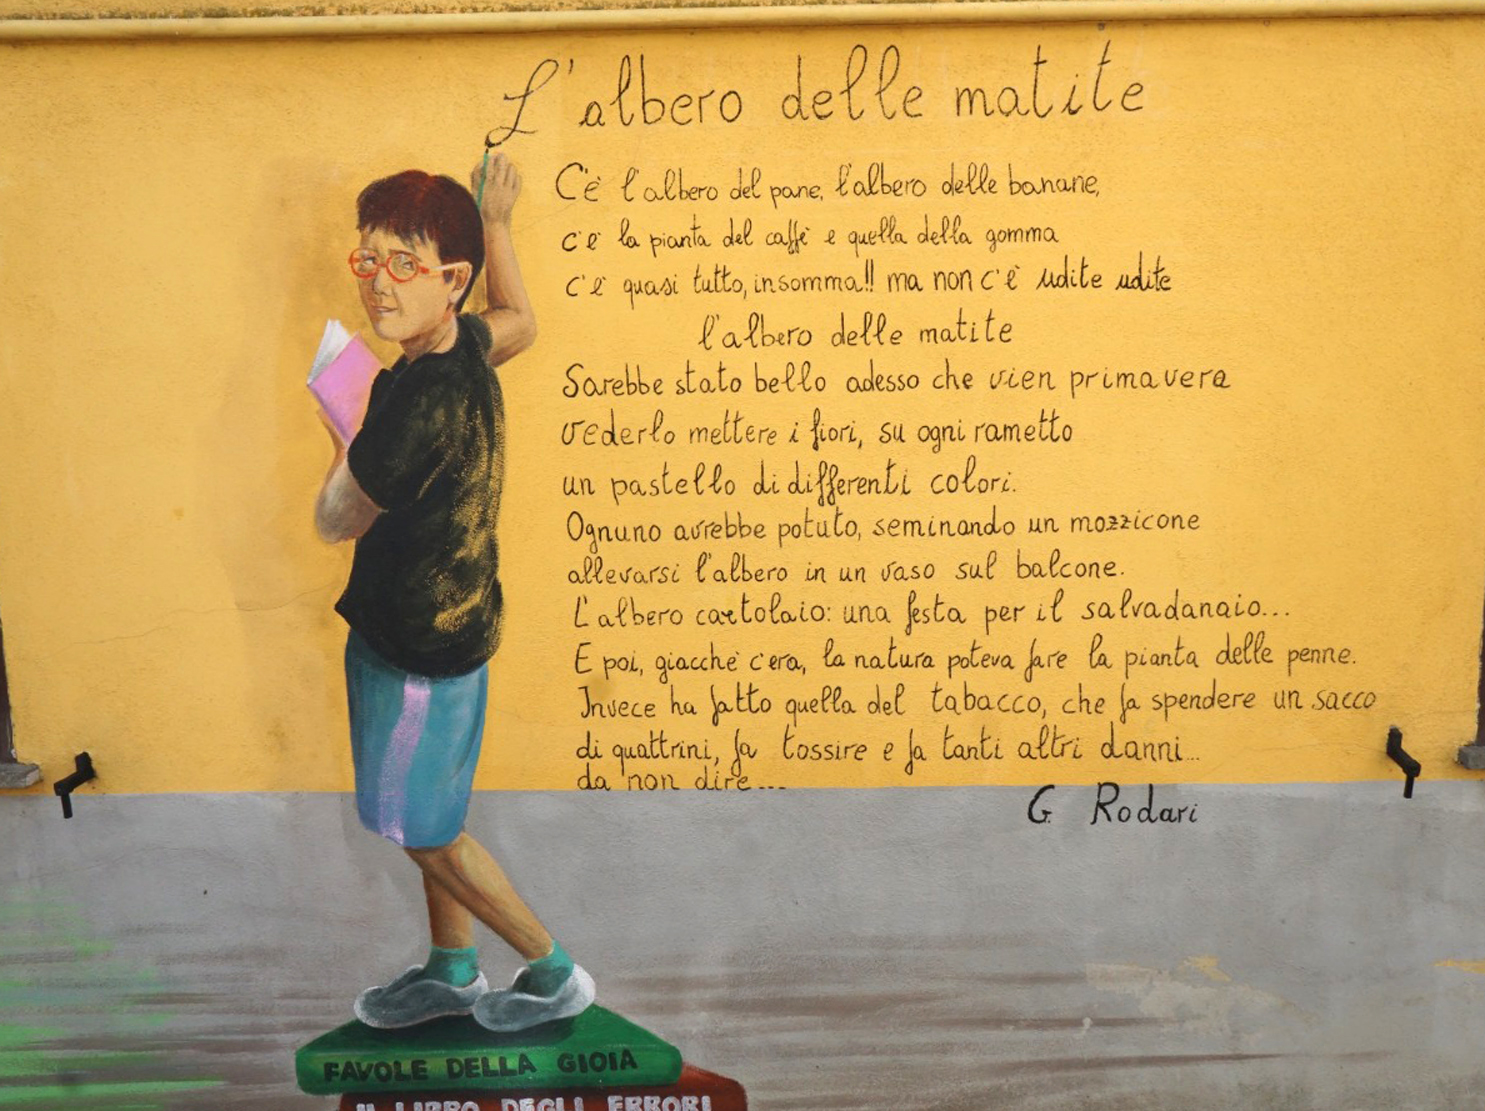 L'albero delle matite
C'è l'albero del pane, l'albero delle banane,
c'è la pianta del caffè e quella della gomma
c'è quasi tutto, insomma!! ma non c'è udite udite
l'albero delle matite
Sarebbe stato bello adesso che vien primavera
vederlo mettere i fiori, su ogni rametto
un pastello di differenti colori.
Ognuno avrebbe potuto, seminando un mozzicone
allevarsi l'albero in un vaso sul balcone.
L'albero cartolaio: una festa per il salvadanaio...
E poi, giacchè c'era, la natura poteva fare la pianta delle penne.
Invece ha fatto quella del tabacco, che fa spendere un sacco
di quattrini, fa tossire e fa tanti altri danni...
da non dire...
G. Rodari
FAVOLE DELLA GIOIA
IL LIBRO DEGLI ERRORI